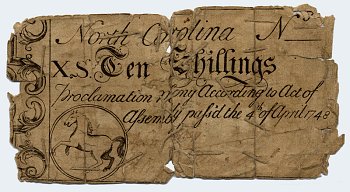 North Carolina N
X.S. Ten Shillings
Proclamation mony According to Act of
Assembly pass'd the 4th of April 1748